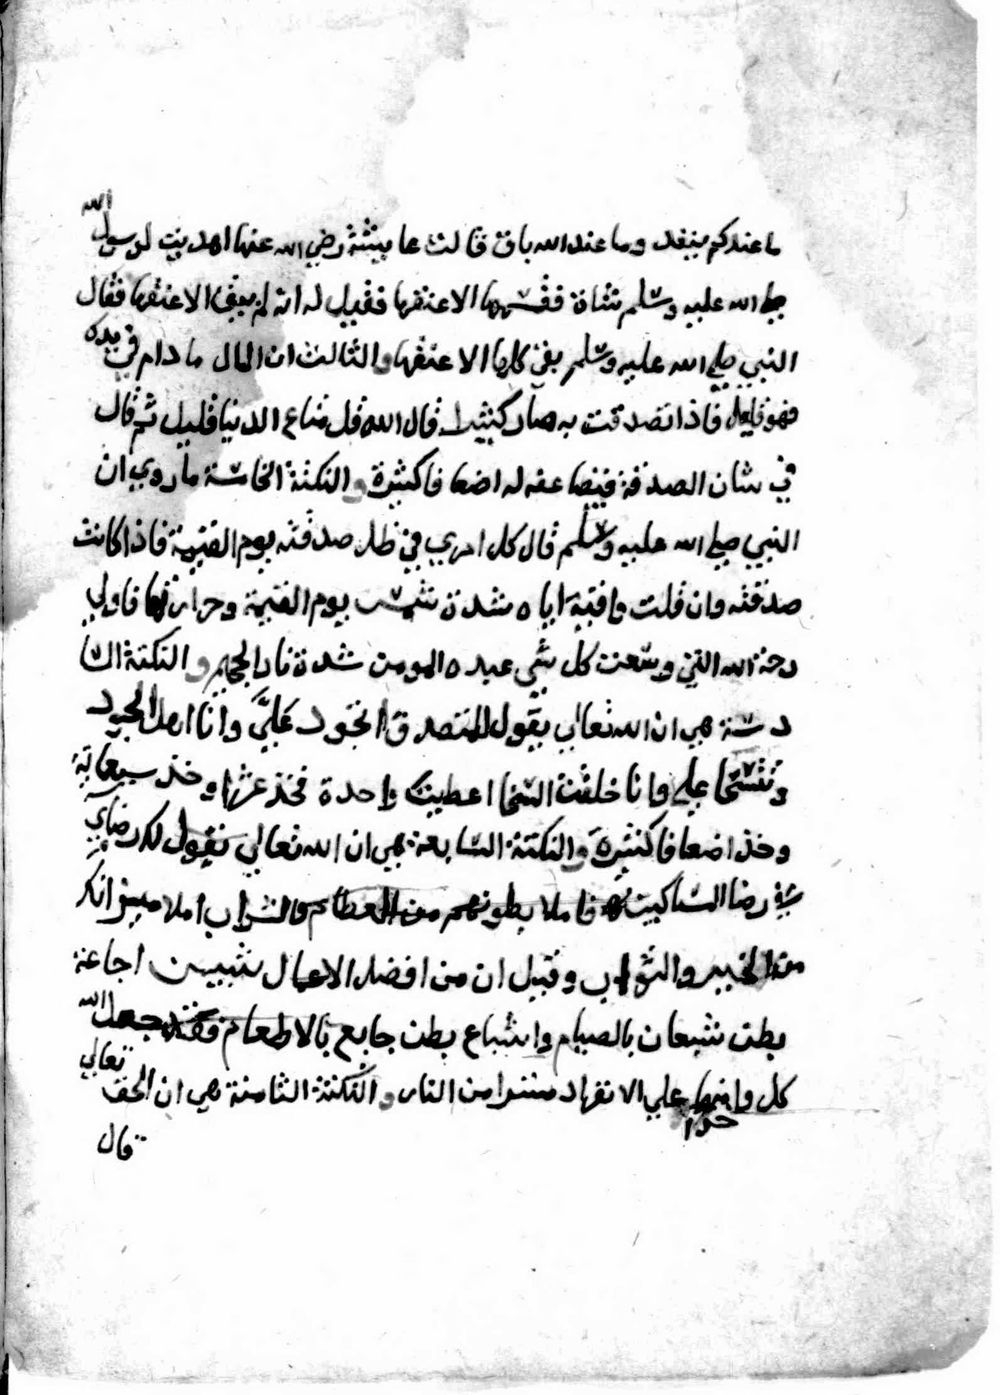 ما عندكم ينفد وما عند الله باق قالت عايشة رضي الله عنها اهديت لرسول الله
صلي الله عليه وسلم شاة فقسمها الا عنقها فقيل له انه لم يبقي الا عنقها فقال
النبي صلي الله عليه وسلم بقي كلها الا عنقها والثالث ان المال ما دام في يدك
فهو قليل فاذا تصدقت به صار كثيرا قال الله قل متاع الدنيا قليل ثم قال
في شان الصدقة فيضاعفه له اضعافا كثيرة والنكتة الخامسة ما روي ان
النبي صلي الله عليه وسلم قال كل امري في ظل صدقته يوم القيمة فاذا كانت
صدقته وان قلت واقية اياه شدة شمس يوم القيمة وحرارتها فاولي
رحمة الله التي وسعت كل شي عبده المومن شدة نار الجحيم والنكتة السا
دسة هي ان الله تعالي يقول للمتصدق اتجود علي وانا اهل الجود
وتتسخا علي وانا خلقت السخا اعطيت واحدة فخذ عشرا وخذ سبعماية
وخذ اضعافا كثيرة والنكتة السابعة هي ان الله تعالي يقول لك رضاي
في رضا المساكين فاملا بطونهم من الطعام والشراب املا ميزانك
من الخير والثواب وقيل ان من افضل الاعمال شيين اجاعة
بطن شبعان بالصيام واشباع بطن جايع بالاطعام فقد جعل الله
كل واحد منهما علي الانفراد سترا من النار والنكتة الثامنة هي ان الحق تعالي
قال